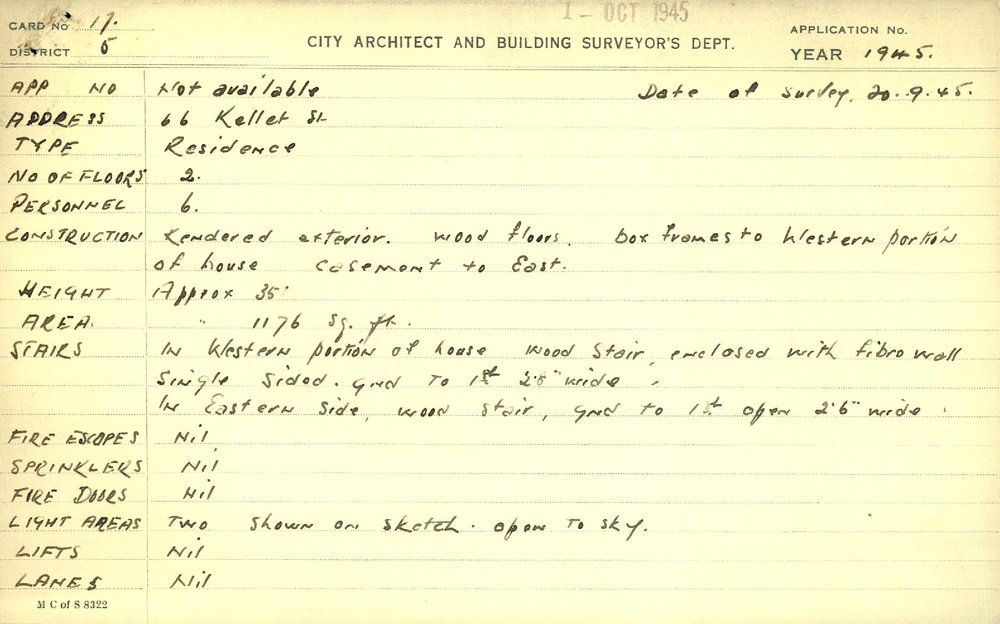 1 - OCT 1945
CARD No 17.
DISTRICT 5
CITY ARCHITECT AND BUILDING SURVEYOR'S DEPT.
APPLICATION No.
YEAR 1945.
APP NO Not available Date of survey. 20.9.45.
ADDRESS 66 Kellet St
TYPE Residence
NO OF FLOORS 2.
PERSONNEL 6.
CONSTRUCTION Rendered exterior. Wood floors. box frames to Western portion
of house casement to East.
HEIGHT Approx 35'
AREA. " 1176 Sq. ft.
STAIRS In Western portion of house wood Stair, enclosed with fibro wall
single sided. gnd to 1st 2'6" wide.
In Eastern side, wood stair, gnd to 1st open 2'6" wide.
FIRE ESCAPES Nil
SPRINKLERS Nil
FIRE DOORS Nil
LIGHT AREAS Two shown on sketch. open to sky.
LIFTS Nil
LANES Nil
M C of S 8322